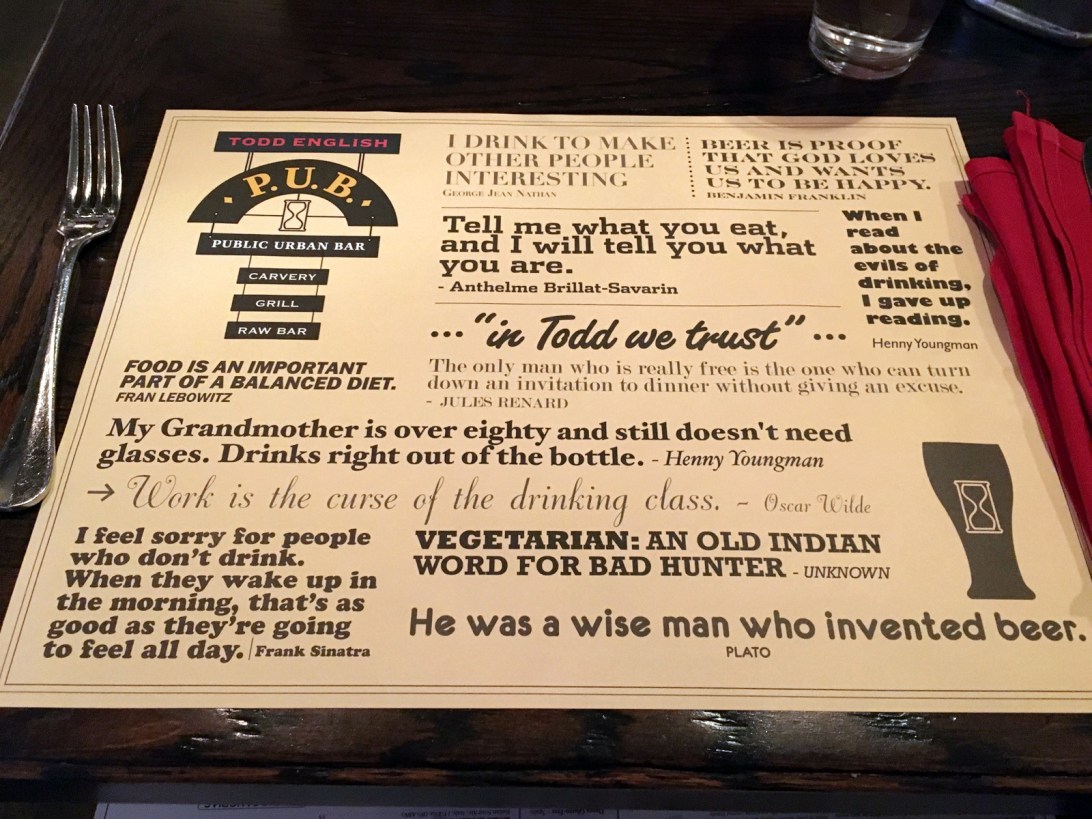 TODD ENGLISH
P.U.B.
PUBLIC URBAN BAR
CARVERY
GRILL
RAW BAR
I DRINK TO MAKE
OTHER PEOPLE
INTERESTING
GEORGE JEAN NATHAN
BEER IS PROOF
THAT GOD LOVES
US AND WANTS
US TO BE HAPPY.
BENJAMIN FRANKLIN
Tell me what you eat,
and I will tell you what
you are.
- Anthelme Brillat-Savarin
When I
read
about the
evils of
drinking,
I gave up
reading.
Henny Youngman
... "in Todd we trust" ...
FOOD IS AN IMPORTANT
PART OF A BALANCED DIET.
FRAN LEBOWITZ
The only man who is really free is the one who can turn
down an invitation to dinner without giving an excuse.
- JULES RENARD
My Grandmother is over eighty and still doesn't need
glasses. Drinks right out of the bottle. - Henny Youngman
→ Work is the curse of the drinking class. ~ Oscar Wilde
I feel sorry for people
who don't drink.
When they wake up in
the morning, that's as
good as they're going
to feel all day. | Frank Sinatra
VEGETARIAN: AN OLD INDIAN
WORD FOR BAD HUNTER - UNKNOWN
He was a wise man who invented beer.
PLATO